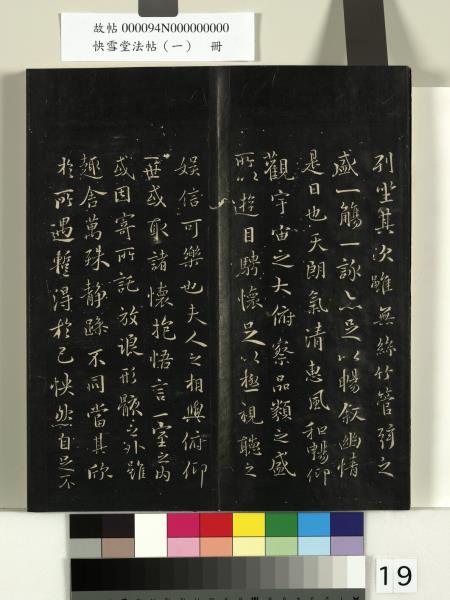 故帖 000094N000000000
快雪堂法帖（一） 冊
列坐其次雖無絲竹管弦之
盛一觴一詠亦足以暢叙幽情
是日也天朗氣清惠風和暢仰
觀宇宙之大俯察品類之盛
所以遊目騁懷足以極視聽之
娛信可樂也夫人之相與俯仰
一世或取諸懷抱悟言一室之內
或因寄所託放浪形骸之外雖
趣舍萬殊靜躁不同當其欣
於所遇暫得於己快然自足不
19